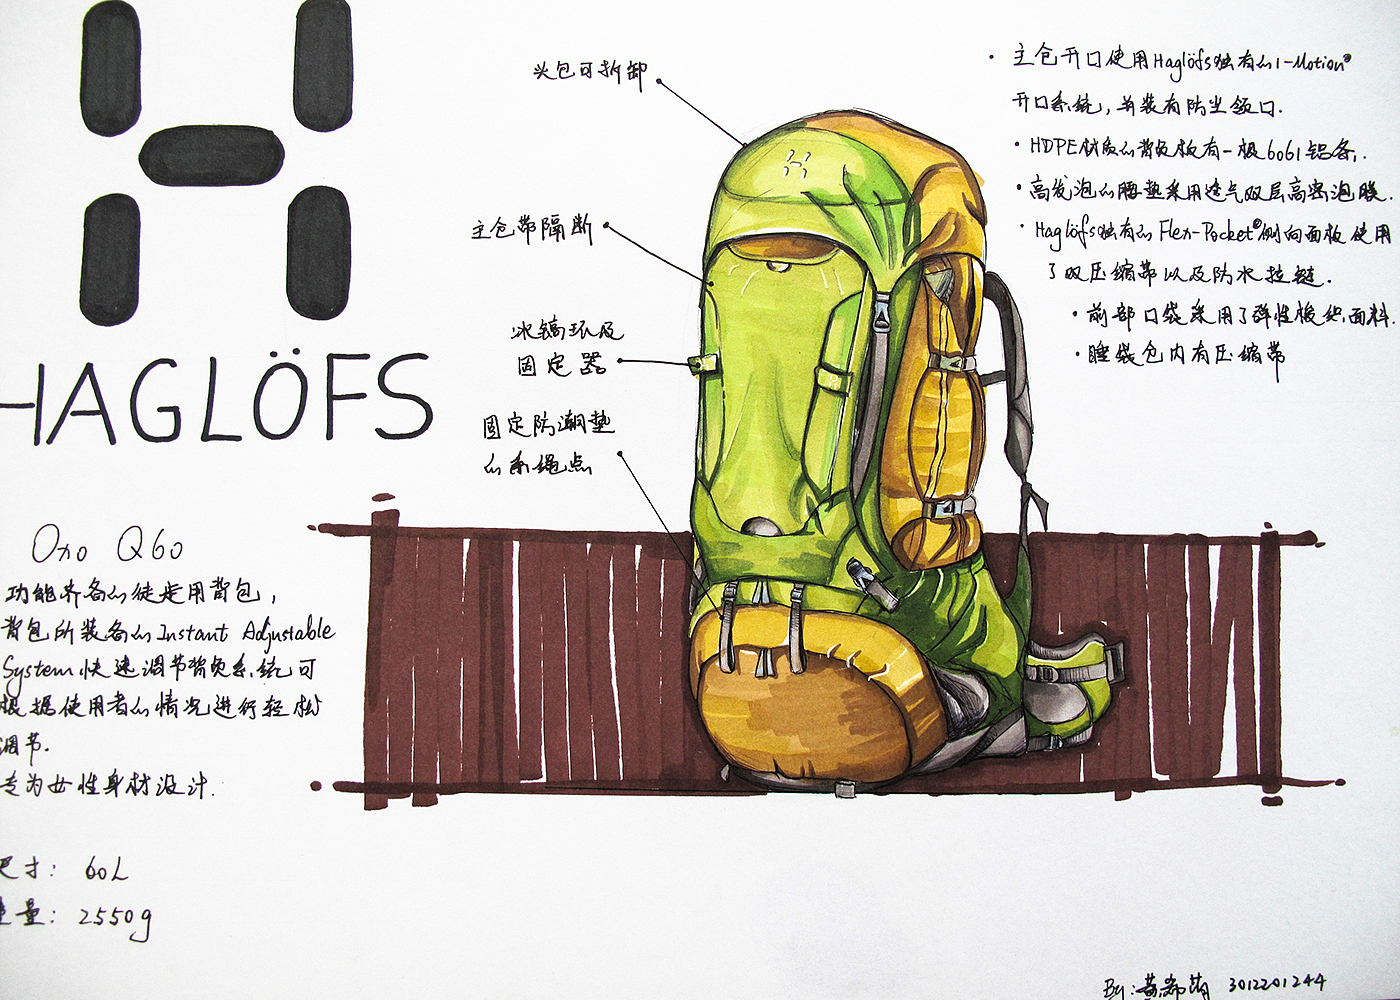 HAGLÖFS
头包可拆卸
主仓带隔断
冰镐环及
固定器
固定防潮垫
的系绳点
· 主仓开口使用Haglöfs独有的I-Motion®
开口系统，并装有防尘领口.
· HDPE材质的背负板有一根6061铝条.
· 高发泡的腰垫采用透气双层高密泡膜.
· Haglöfs独有的Flex-Pocket®侧向面板使用
了双压缩带以及防水拉链.
· 前部口袋采用了弹性梭织面料.
· 睡袋包内有压缩带
Oxo Q60
功能齐备的徒步用背包，
背包所装备的Instant Adjustable
System快速调节背负系统可
根据使用者的情况进行轻松
调节.
专为女性身材设计.
尺寸: 60L
重量: 2550g
By: 黄 3012201244